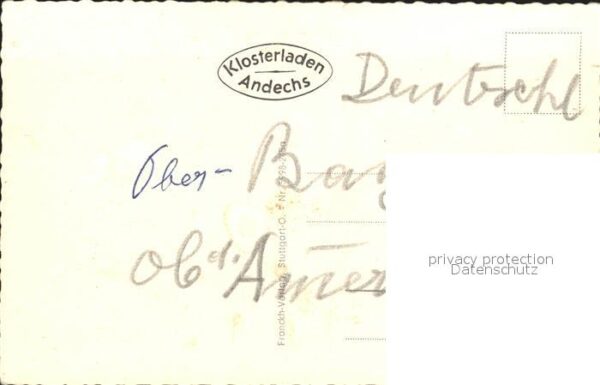 Klosterladen
Andechs
Deutschl
Ober- Bay
ob d. Amer
Franckh-Verlag, Stuttgart-O.
privacy protection
Datenschutz